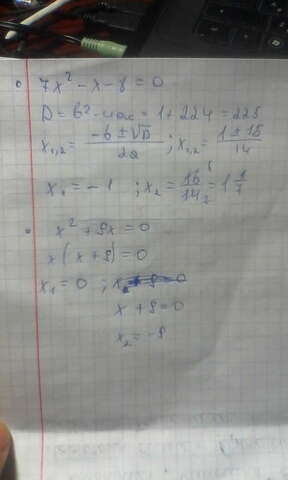 7x² - x - 8 = 0
D = b² - 4ac = 1 + 224 = 225
x₁,₂ = (-b ± √D) / 2a ; x₁,₂ = (1 ± 15) / 14
x₁ = -1 ; x₂ = 16/14 = 1 1/7
x² + 9x = 0
x(x + 9) = 0
x₁ = 0 ;
x + 9 = 0
x₂ = -9